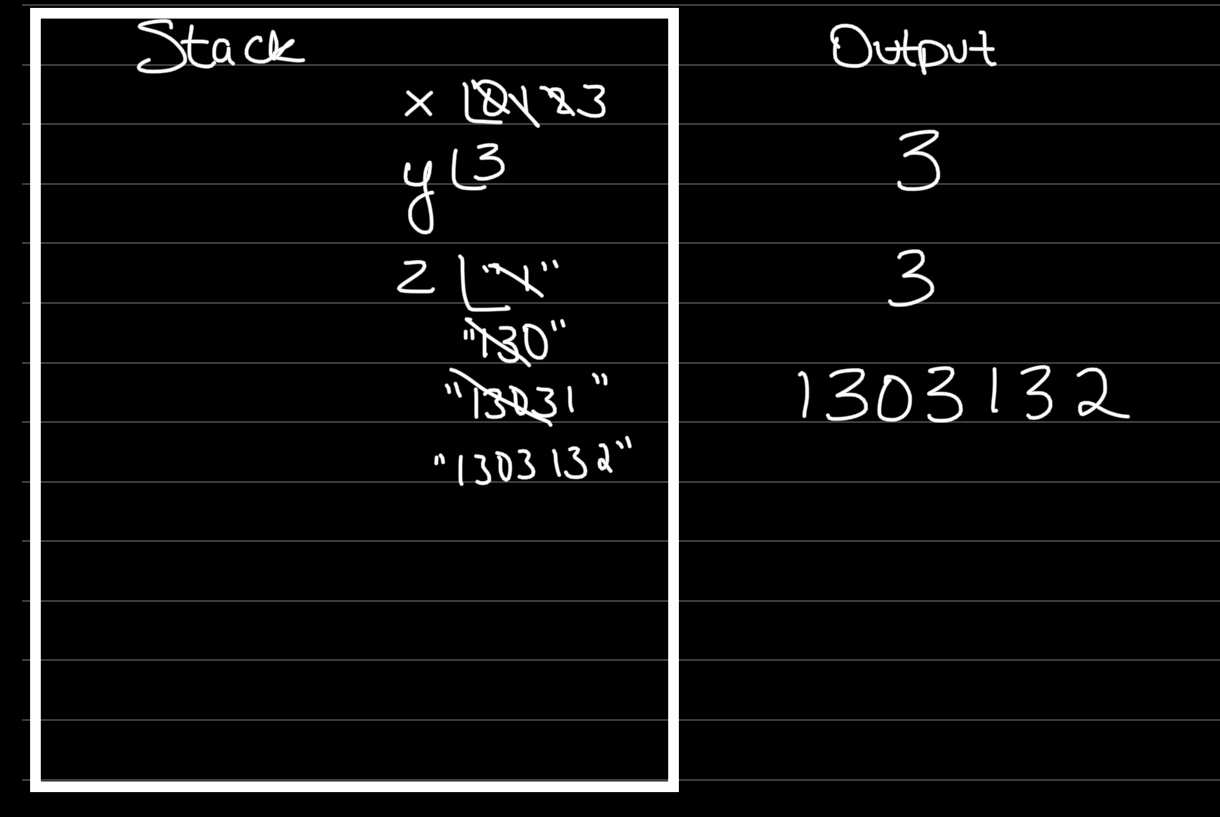 Stack
x 0 1 2 3
y 3
z "1"
"130"
"13031"
"1303132"
Output
3
3
1303132